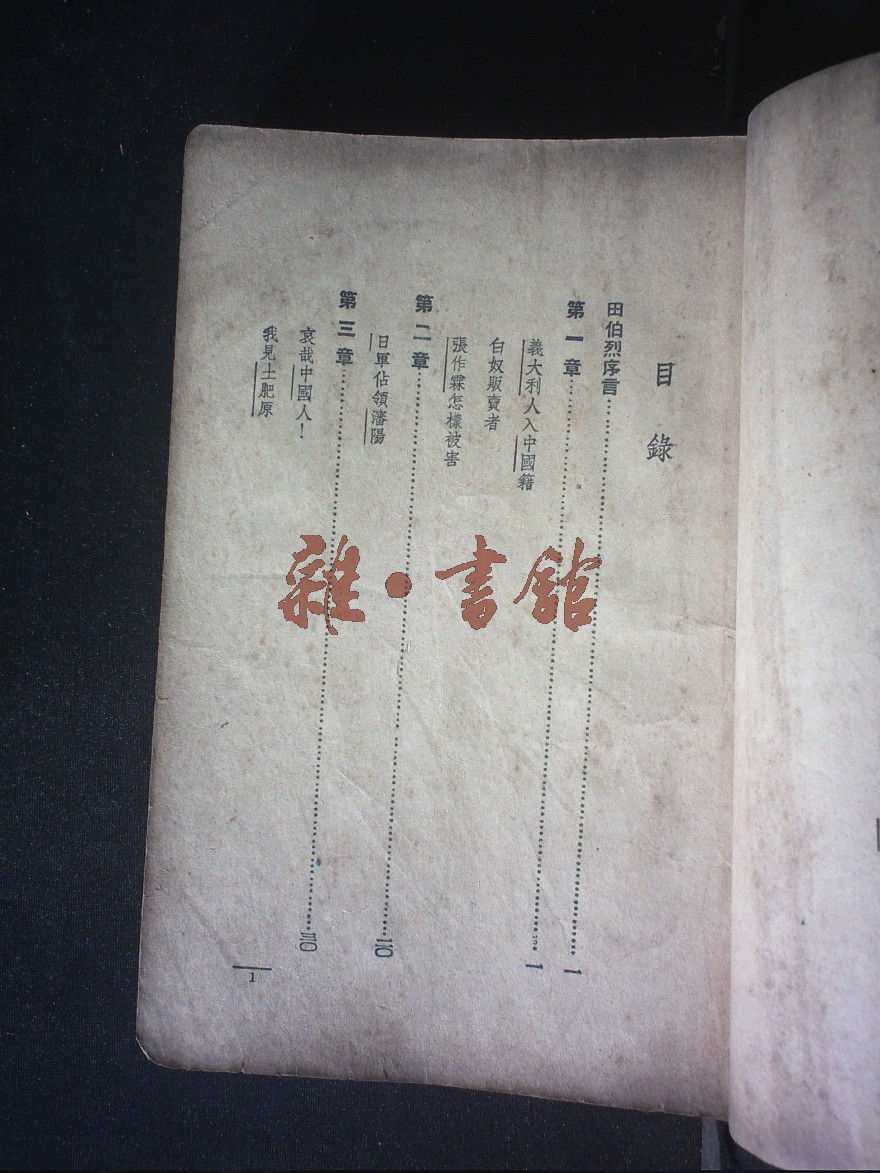 目錄
田伯烈序言……一
第一章……一
義大利人入中國籍
白奴販賣者
張作霖怎樣被害
第二章……二〇
日軍佔領瀋陽
第三章……三〇
哀哉中國人！
我見土肥原
1
雜·書館